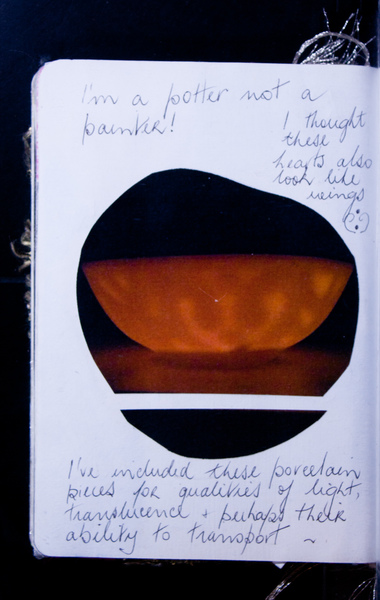 I'm a potter not a
painter!
I thought
these
hearts also
look like
wings
I've included these porcelain
pieces for qualities of light,
translucence + perhaps their
ability to transport ~